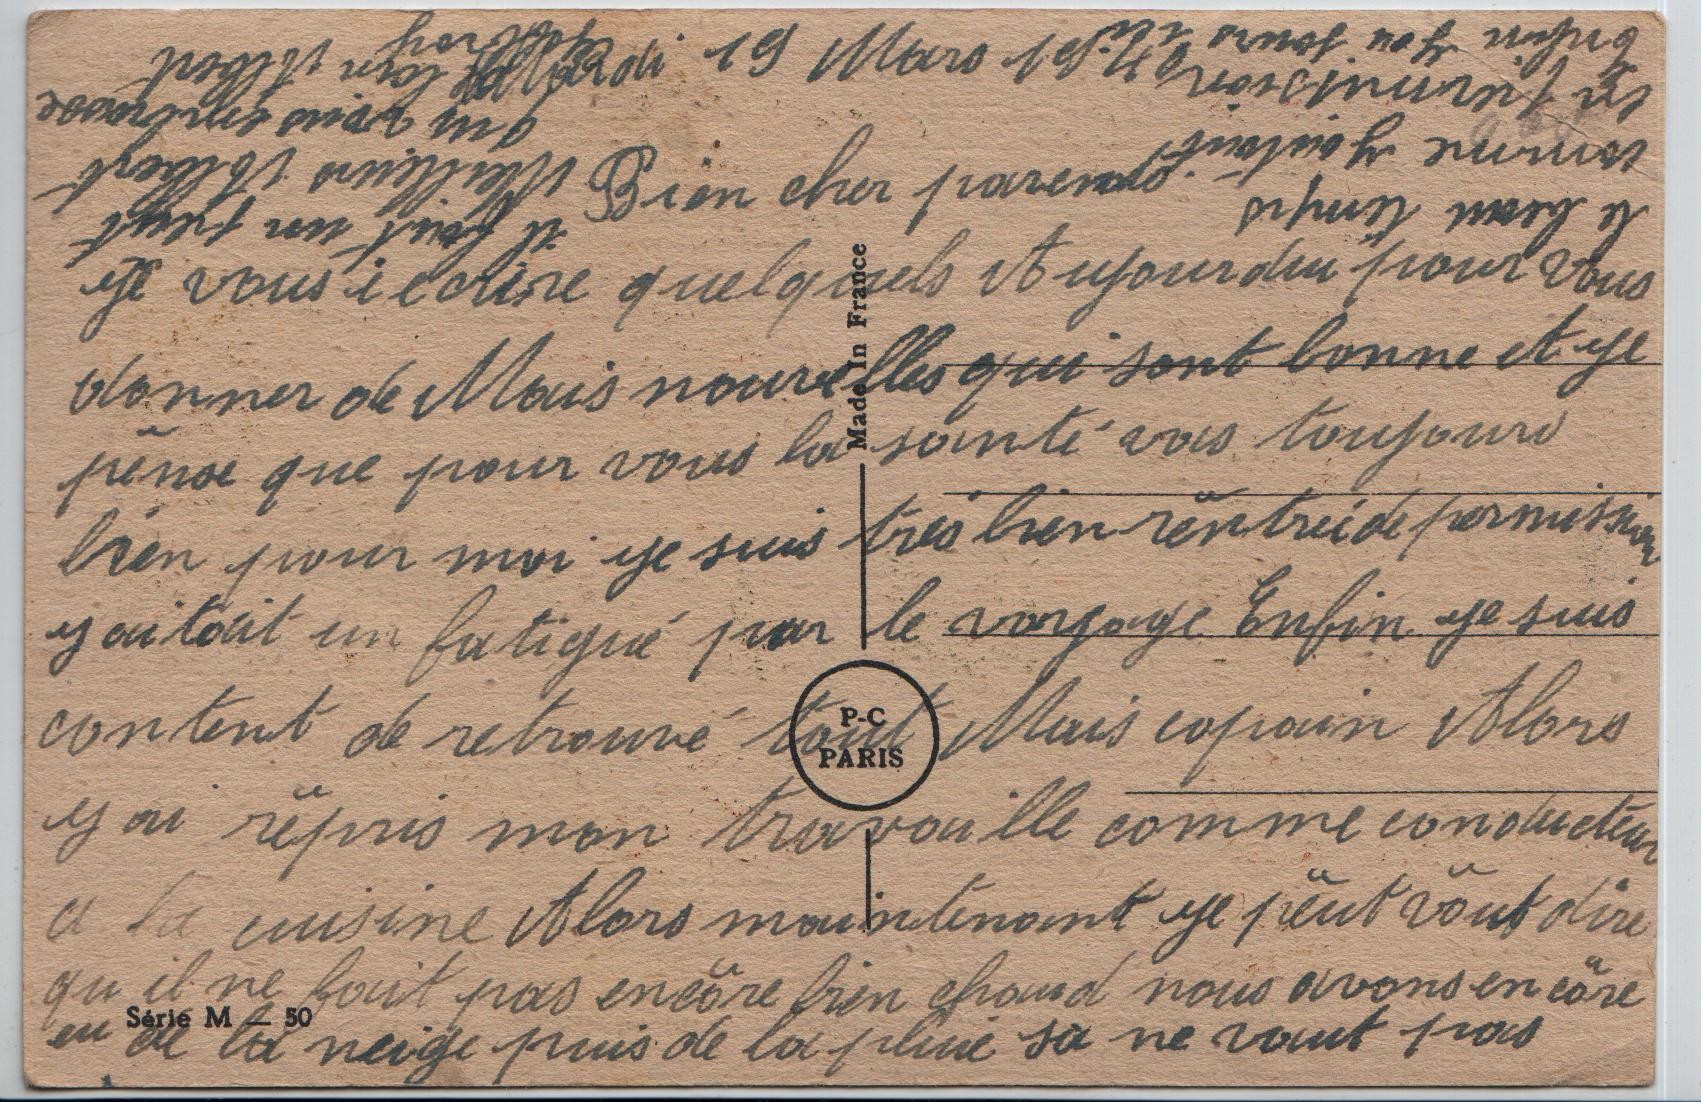 Mardi 19 Mars 194
Bien cher parents.
ye vous iecrire quelquels Aujourdui pour vous
donner de Mais nouvelles qui sont bonne et ye
pense que pour vous la santé vas toujours
bien pour moi ye suis très bien rentrei de permission
y aitait un fatigué par le voyage Enfin ye suis
content de retrouvé tout Mais copain Alors
y ai repris mon travouille comme conducteur
a la cuisine Alors maintenant ye peut vout dire
qu il ne fait pas encore bien chaud nous avons encore
eu de la neige puis de la pluie sa ne vaut pas
le beau temps
comme
la permission
Enfin
il fait
Albert
Made In France
P-C
PARIS
Série M — 50